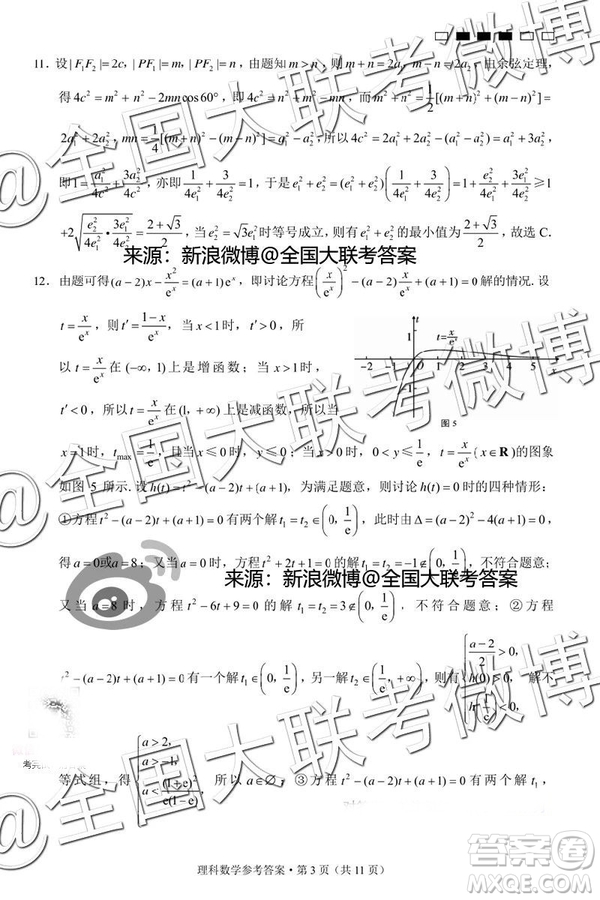 11．设|F₁F₂|=2c，|PF₁|=m，|PF₂|=n，由题知m>n，则m+n=2a₁，m−n=2a₂，由余弦定理，
得4c²=m²+n²−2mncos60°，即4c²=m²+n²−mn，而m²+n²=1/2[(m+n)²+(m−n)²]=
2a₁²+2a₂²，mn=1/4[(m+n)²−(m−n)²]=a₁²−a₂²，所以4c²=2a₁²+2a₂²−(a₁²−a₂²)=a₁²+3a₂²，
即1=a₁²/4c²+3a₂²/4c²，亦即1/4e₁²+3/4e₂²=1，于是e₁²+e₂²=(e₁²+e₂²)(1/4e₁²+3/4e₂²)=1+e₂²/4e₁²+3e₁²/4e₂²≥1
+2√(e₂²/4e₁²·3e₁²/4e₂²)=(2+√3)/2，当e₂²=√3e₁²时等号成立，则e₁²+e₂²的最小值为(2+√3)/2，故选C．
来源：新浪微博@全国大联考答案
12．由题可得(a−2)x−x²/eˣ=(a+1)eˣ，即讨论方程(x/eˣ)²−(a−2)x/eˣ+(a+1)=0解的情况．设
t=x/eˣ，则t′=(1−x)/eˣ，当x<1时，t′>0，所
以t=x/eˣ在(−∞，1)上是增函数；当x>1时，
t′<0，所以t=x/eˣ在(1，+∞)上是减函数，所以当
t=x/eˣ
−2 −1 0 1 2 3 4 5 x
图5
x=1时，t_max=1/e，当x≤0时，y≤0；当x>0时，0<y≤1/e，t=x/eˣ(x∈R)的图象
如图5所示．设h(t)=t²−(a−2)t+(a+1)，为满足题意，则讨论h(t)=0时的四种情形：
①方程t²−(a−2)t+(a+1)=0有两个解t₁=t₂∈(0，1/e)，此时由Δ=(a−2)²−4(a+1)=0，
得a=0或a=8；又当a=0时，方程t²+2t+1=0的解t₁=t₂=−1∉(0，1/e)，不符合题意；
又当a=8时，方程t²−6t+9=0的解t₁=t₂=3∉(0，1/e)，不符合题意；②方程
来源：新浪微博@全国大联考答案
t²−(a−2)t+(a+1)=0有一个解t₁∈(0，1/e)，有一个解t₂∈(1/e，+∞)，则有{(a−2)/2>0，h(0)>0，h(1/e)<0，解不
等式组，得{a>2，a>−1，a<(1+e)²/e(1−e)，所以a∈∅；③方程t²−(a−2)t+(a+1)=0有两个解t₁，
理科数学参考答案·第3页（共11页）
@全国大联考微博
@全国大联考微博
@全国大联考微博
答案圈
MXQE.COM